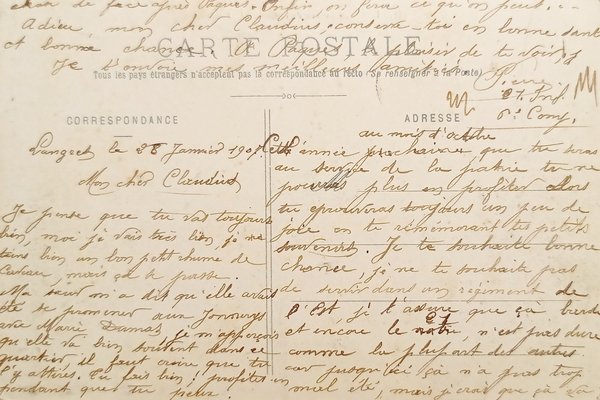 chan de face après Pâques. Enfin on fera ce qu'on peut.
Adieu, mon cher Claudius, conserve toi en bonne santé
et bonne chance. A Pâques le plaisir de te voir
Je t'envoie mes meilleures amitiés. Pierre
CARTE POSTALE
Tous les pays étrangers n'acceptent pas la correspondance au recto (Se renseigner à la Poste)
27 Inf.
6e Comp.
CORRESPONDANCE
Langres le 28 Janvier 190
Mon cher Claudius
Je pense que tu vas toujours
bien, moi je vais très bien, je ne
tiens bien un bon petit rhume de
cerveau, mais ça se passe.
Ma sœur m'a dit qu'elle avait
été se promener aux
avec Marie Damas, je m'aperçois
qu'elle va bien souvent dans ce
quartier, il faut croire que tu
l'y attires. Tu fais bien, profites en
pendant que tu peux.
ADRESSE
au mois d'octobre
Cette année prochaine que tu seras
au service de la patrie tu ne
pourras plus en profiter. Alors
tu éprouveras toujours un peu de
joie en te remémorant tes petits
souvenirs. Je te souhaite bonne
chance, je ne te souhaite pas
de servir dans un régiment de
l'Est, je t'assure que ça barde
et encore le 21 notre, n'est pas dure
comme la plupart des autres.
car jusqu'ici ça n'a pas trop
mal été, mais je crois que ça va